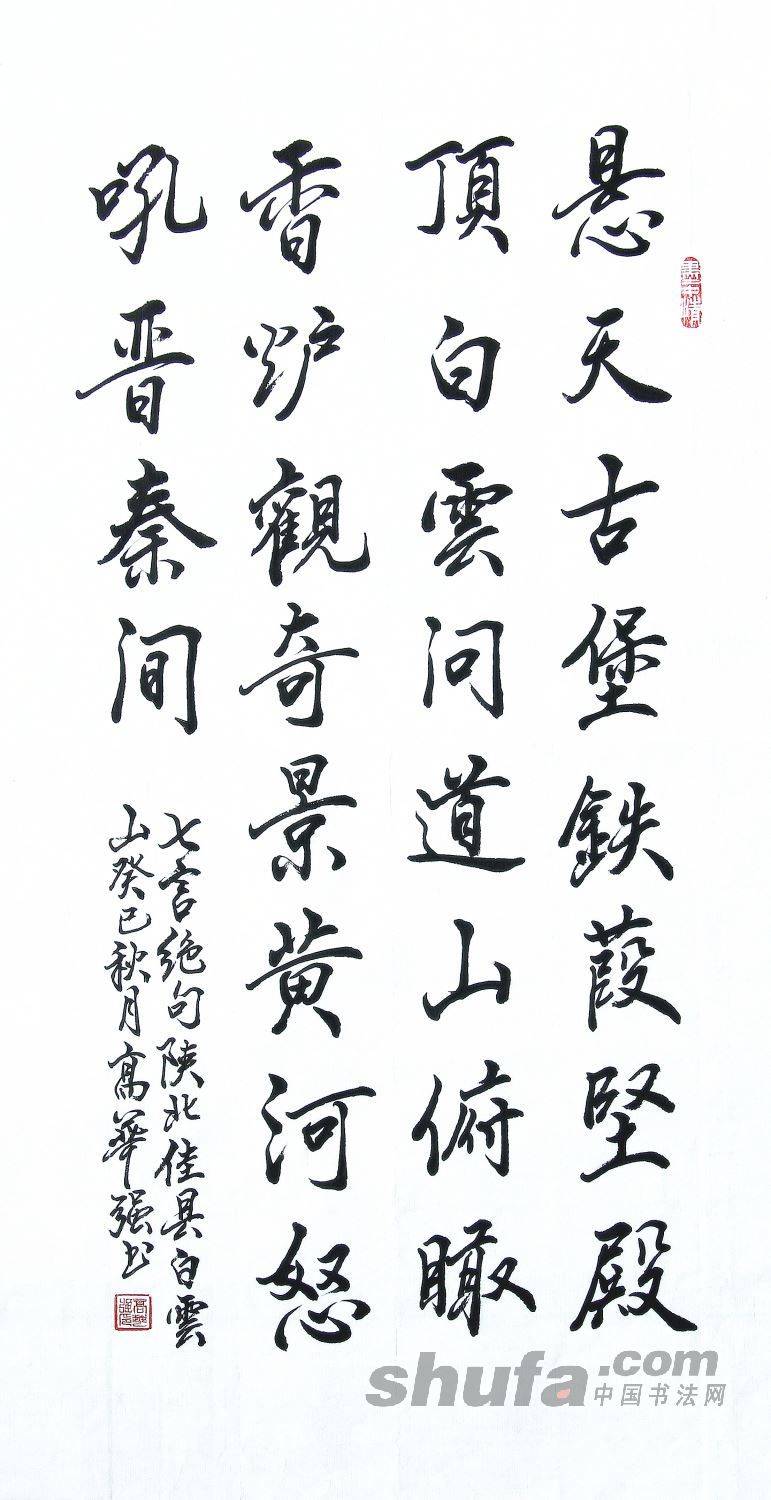 悬天古堡鉄葭堅殿
頂白雲问道山俯瞰
香炉觀奇景黄河怒
吼晋秦间
七言绝句陕北佳县白雲
山癸巳秋月高華强书
shufa.com
中国书法网